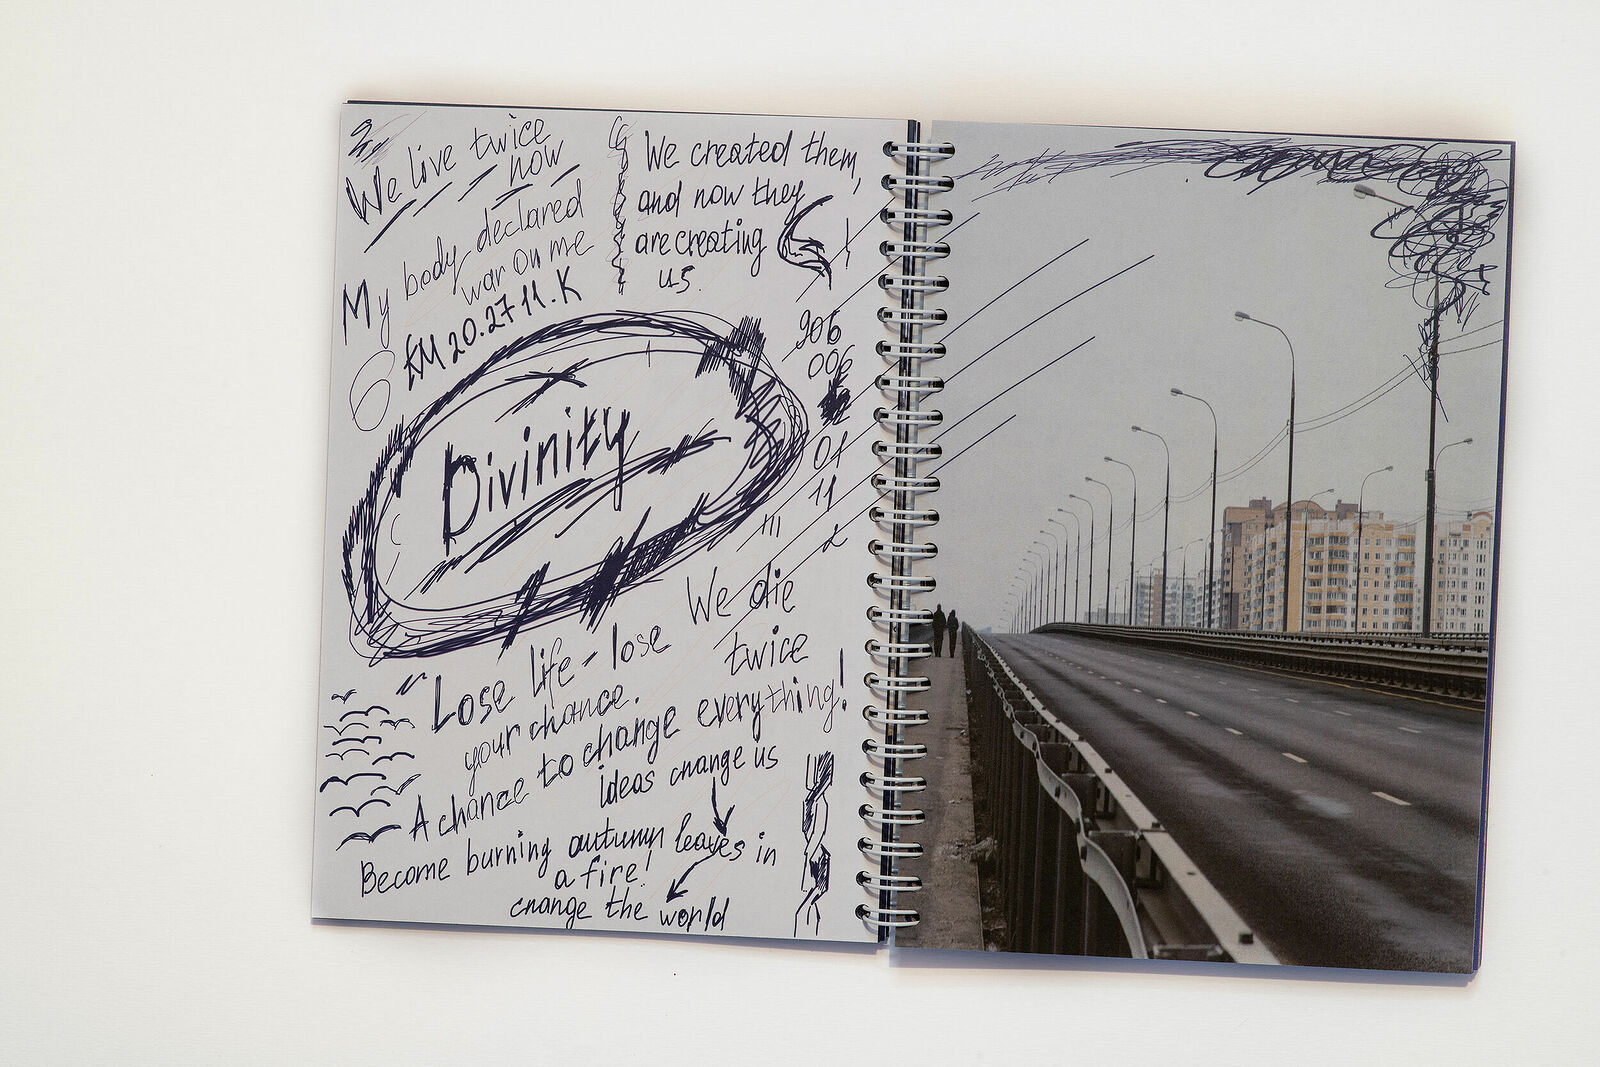 We live twice
now
My body declared
war on me
20.27 11.K
We created them,
and now they
are creating
us.
906
006
01
11
Divinity
We die
twice
Lose life - lose
your chance.
A chance to change everything!
ideas change us
Become burning autumn leaves in
a fire!
change the world